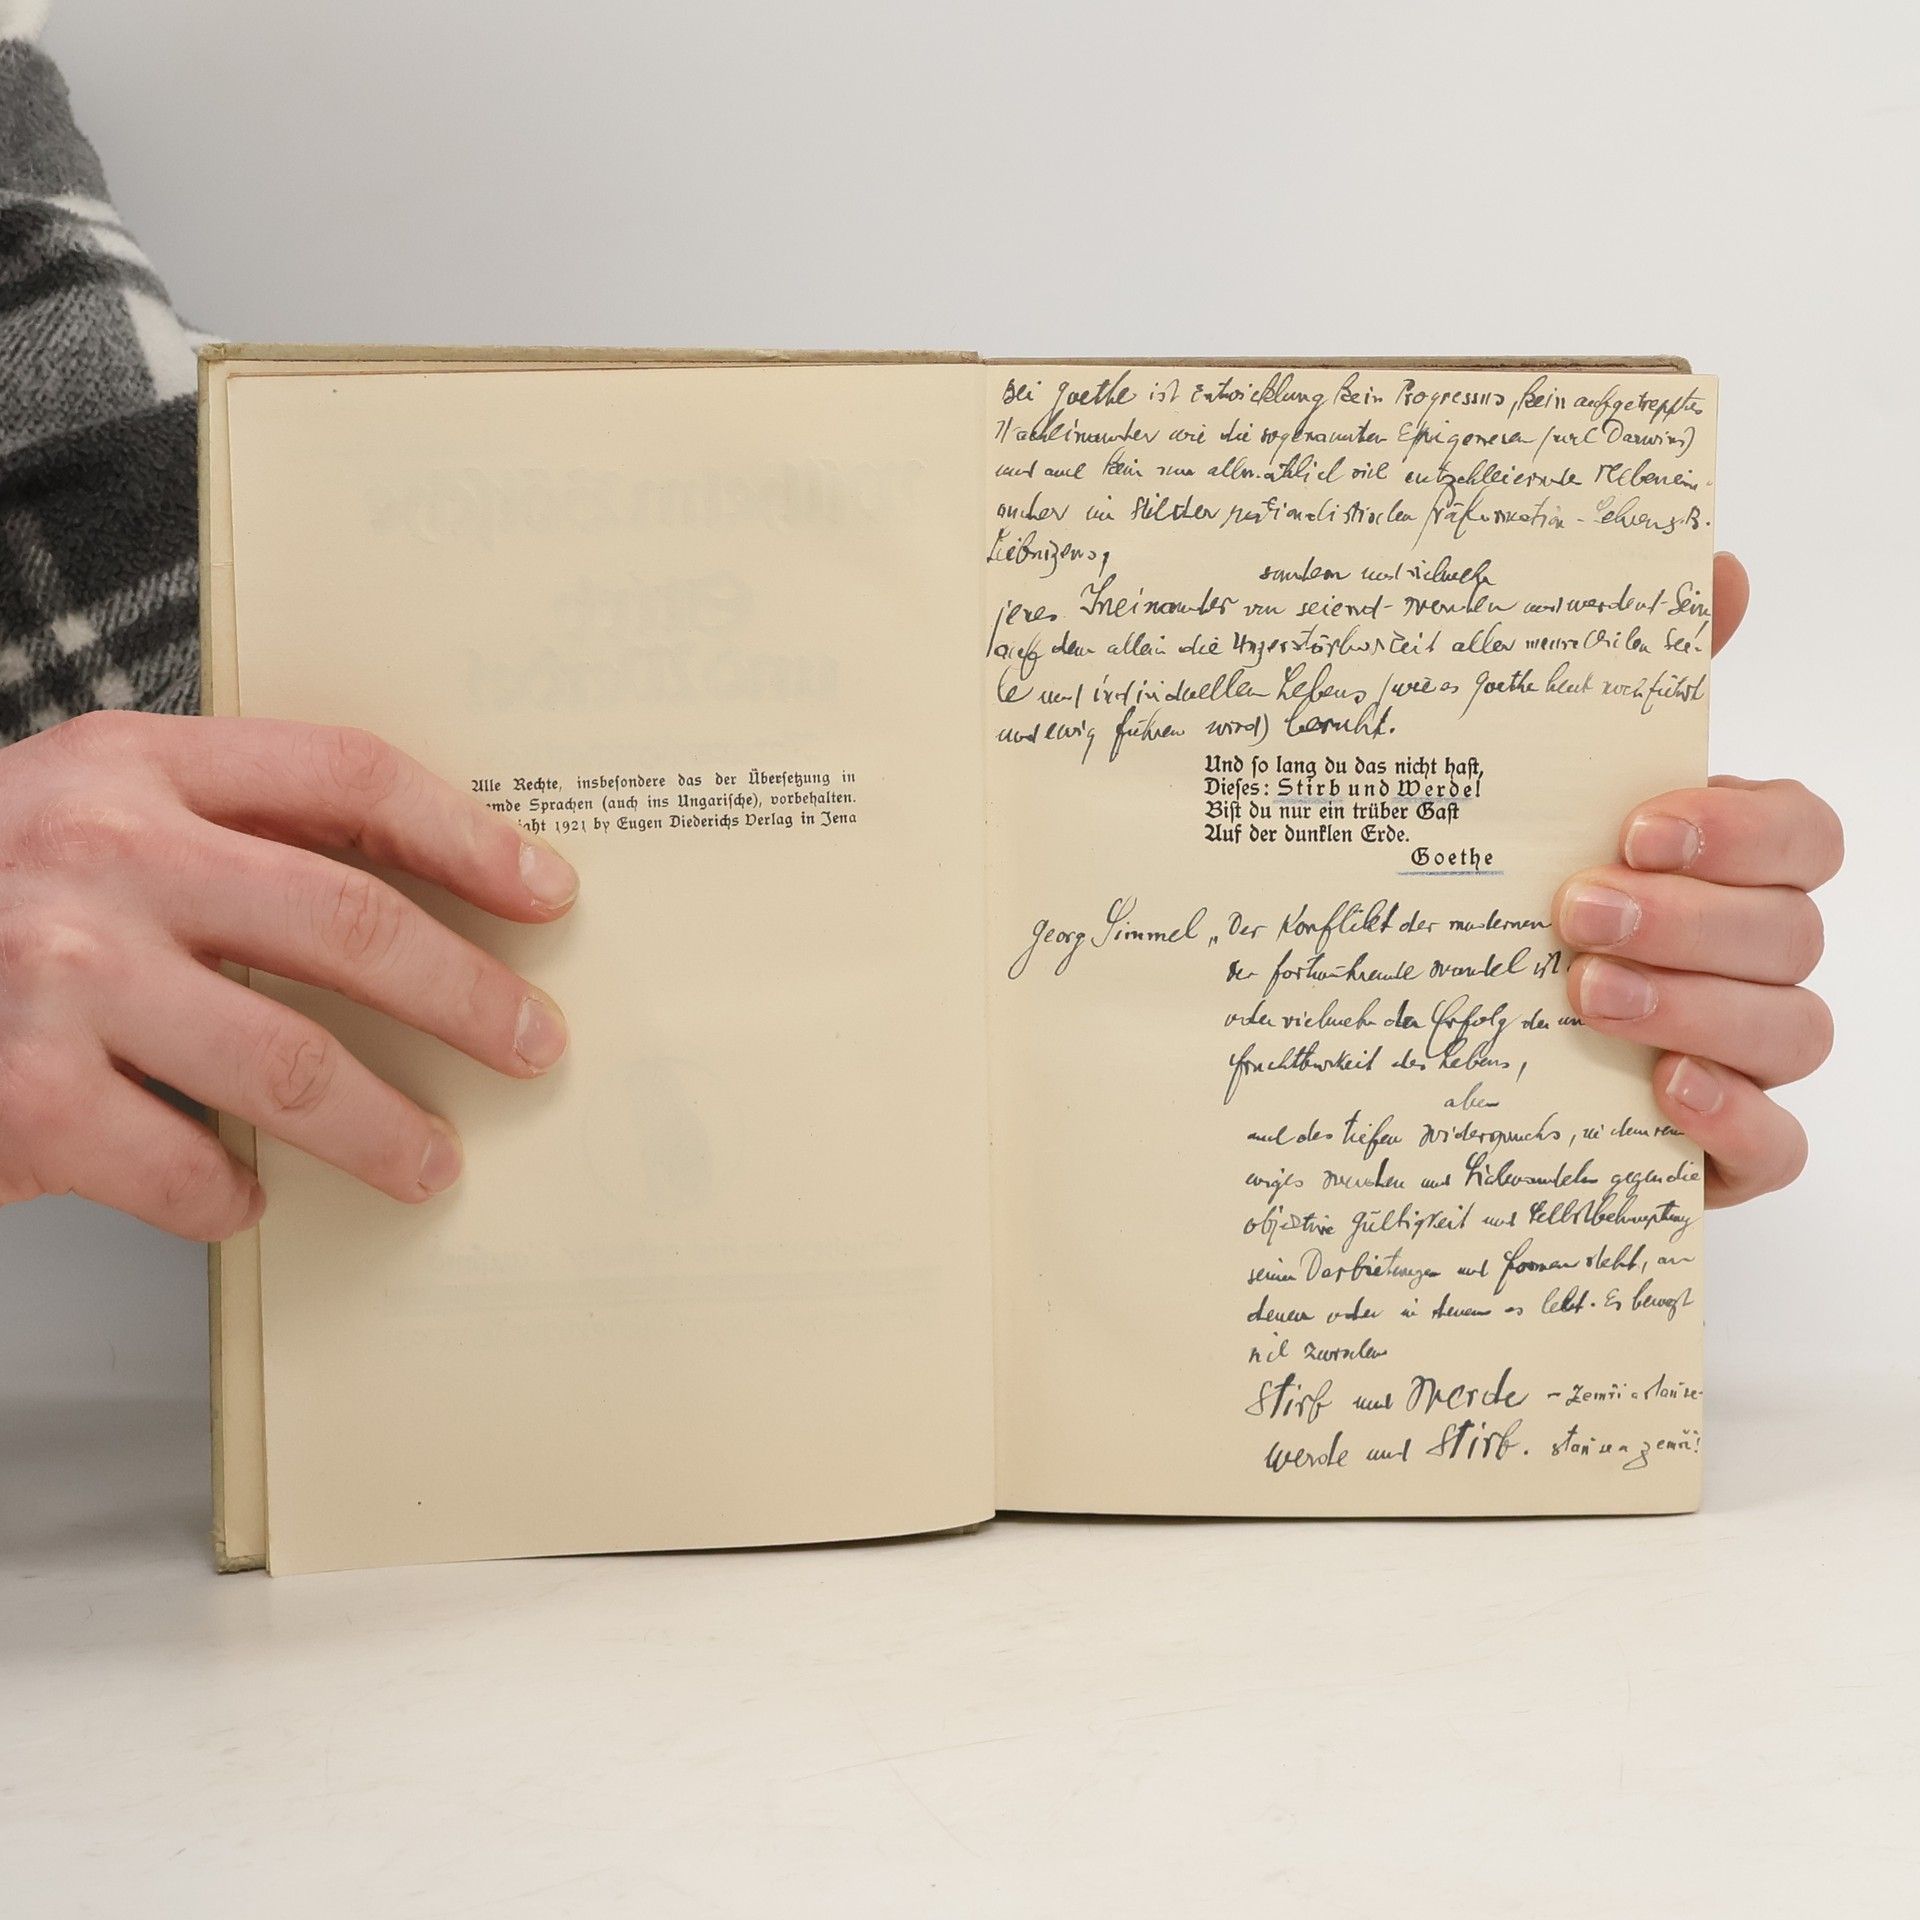 Alle Rechte, insbesondere das der Übersetzung in
emde Sprachen (auch ins Ungarische), vorbehalten.
ight 1921 by Eugen Diederichs Verlag in Jena
Bei Goethe ist Entwicklung kein Progressus, kein aufgetrepptes
Nacheinander wie die sogenannten Epigenesen
und auch kein nur allmählich sich entschleierndes Nebenein-
ander im Stil der Präformation-
Leibnizens,
sondern und vielmehr
jenes Ineinander von seiend-werden und werdend-Sein,
auf dem allein die Unzerstörbarkeit aller menschlichen See-
le und individuellen Lebens (wie es Goethe heut noch führt
und ewig führen wird) beruht.
Und so lang du das nicht hast,
Dieses: Stirb und Werde!
Bist du nur ein trüber Gast
Auf der dunklen Erde.
Goethe
Georg Simmel „Der Konflikt der modernen
der fortwährende Wandel ist
oder vielmehr der Erfolg der un
fruchtbarkeit des Lebens,
aber
auch des tiefen Widerspruchs, in dem sein
ewiges Werden und Sichwandeln gegen die
objektive Gültigkeit und Selbstbehauptung
seiner Darbietungen und Formen steht, an
denen oder in denen es lebt. Es bewegt
sich zwischen
Stirb und Werde - zemři a staň se-
werde und Stirb. staň se a zemři!